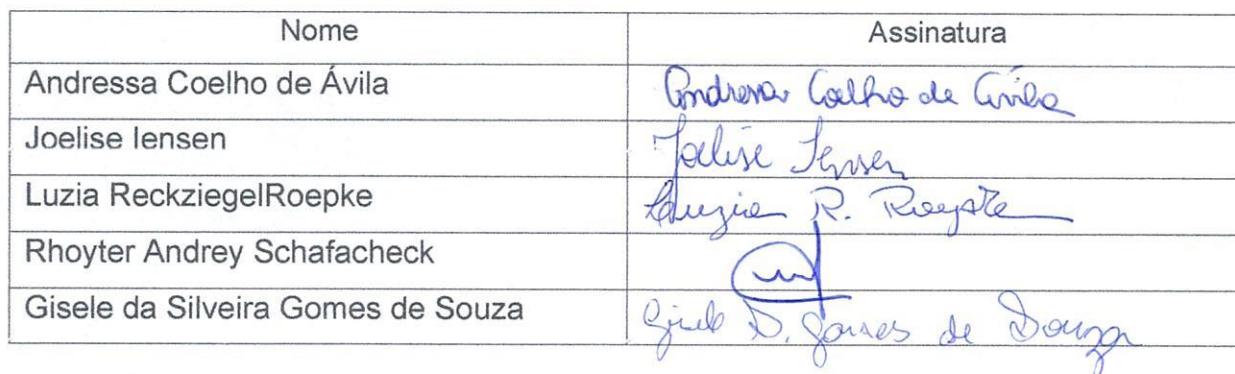 Nome Assinatura
Andressa Coelho de Ávila Andressa Coelho de Ávila
Joelise Iensen Joelise Iensen
Luzia ReckziegelRoepke Luzia R. Roepke
Rhoyter Andrey Schafacheck
Gisele da Silveira Gomes de Souza Gisele D. Gomes de Souza